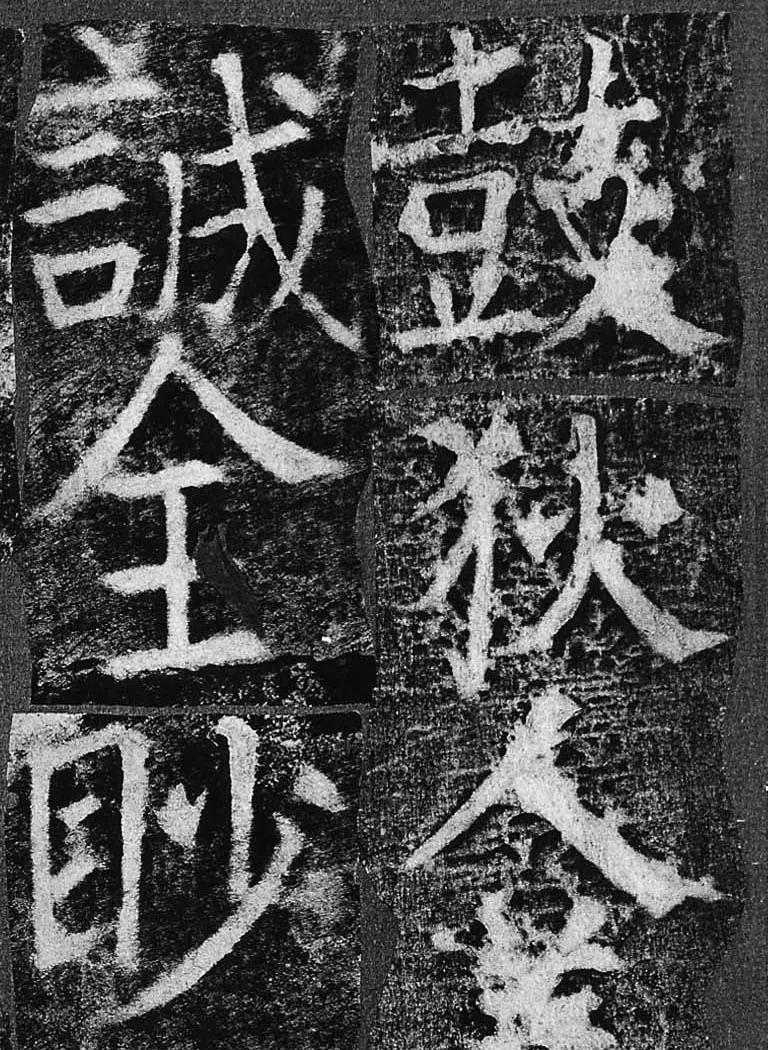 鼓狄人
誠全眇